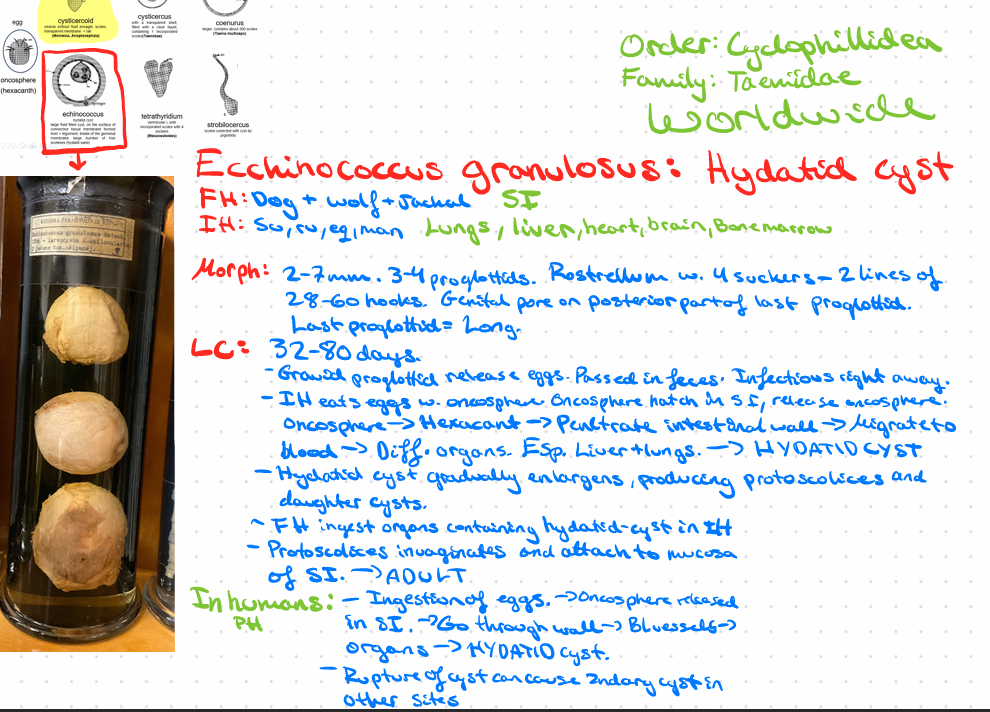 egg
oncosphere
(hexacanth)
cysticercoid
vesicle without fluid envagin scolex
transparent membrane + tail
(Moniezia, Anoplocephala)
cysticercus
with a transparent shell,
filled with a clear liquid,
containing 1 incorporated
scolex(Taeniosoe)
coenurus
larger, contains about 300 scolex
(Taenia multiceps)
echinococcus
hydatid cyst
large fluid filled cyst, on the surface of
connective tissue membrane formed
host + ligument, inside of the germinal
membrane, large number of free
scolexes (hydatid sand)
tetrathyridium
vermicular L with
incorporated scolex with 4
suckers
(Mesocestoides)
strobilocercus
scolex conected with cyst by
proglottids
Order: Cyclophillidea
Family: Taeniidae
Worldwide
Ecchinococcus granulosus: Hydatid cyst
FH: Dog + wolf + Jackal SI
IH: Su, ru, eq, man Lungs, liver, heart, brain, Bone marrow
Morph: 2-7mm. 3-4 proglottids. Rostrellum w. 4 suckers - 2 lines of
28-60 hooks. Genital pore on posterior part of last proglottid.
Last proglottid = Long.
LC: 32-80 days.
- Gravid proglottid release eggs. Passed in feces. Infectious right away.
- IH eats eggs w. oncosphere. Oncosphere hatch in SI, release oncosphere.
Oncosphere -> Hexacant -> Penetrate intestinal wall -> Migrate to
blood -> Diff. organs. Esp. Liver + lungs. -> HYDATID CYST
- Hydatid cyst gradually enlargens, producing protoscolices and
daughter cysts.
~ FH ingest organs containing hydatid-cyst in IH
- Protoscolices invaginates and attach to mucosa
of SI. -> ADULT
In humans: - Ingestion of eggs. -> Oncosphere released
PH
in SI. -> Go through wall -> Bl.vessels ->
organs -> HYDATID cyst.
- Rupture of cyst can cause 2ndary cyst in
other sites